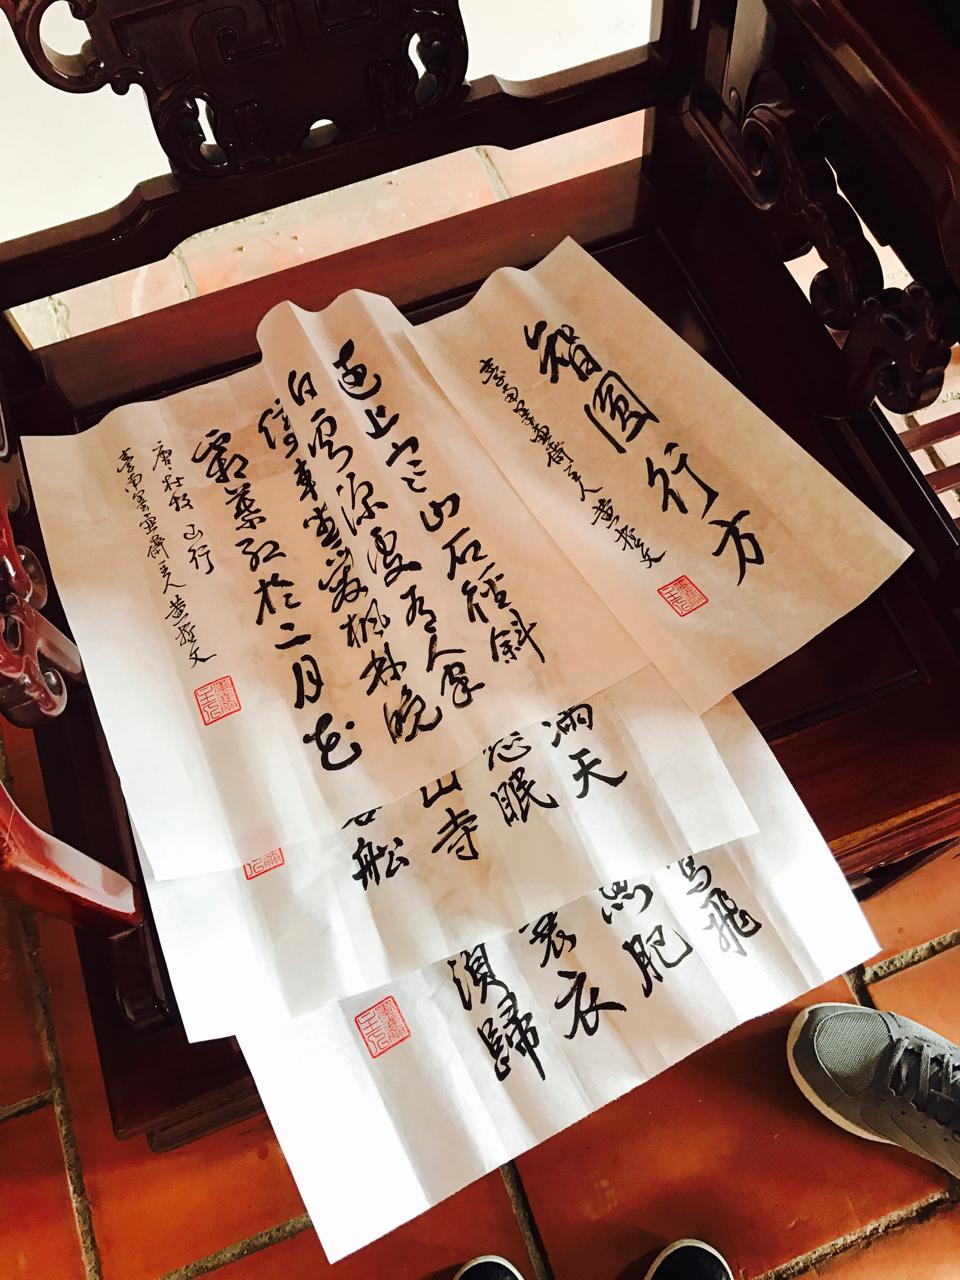 智圓行方
臺南墨齋主人 黃哲文
遠上寒山石徑斜
白雲深處有人家
停車坐愛楓林晚
霜葉紅於二月花
唐 杜牧 山行
臺南墨齋主人 黃哲文
滿天
愁眠
山寺
客船
鷺飛
魚肥
蓑衣
須歸